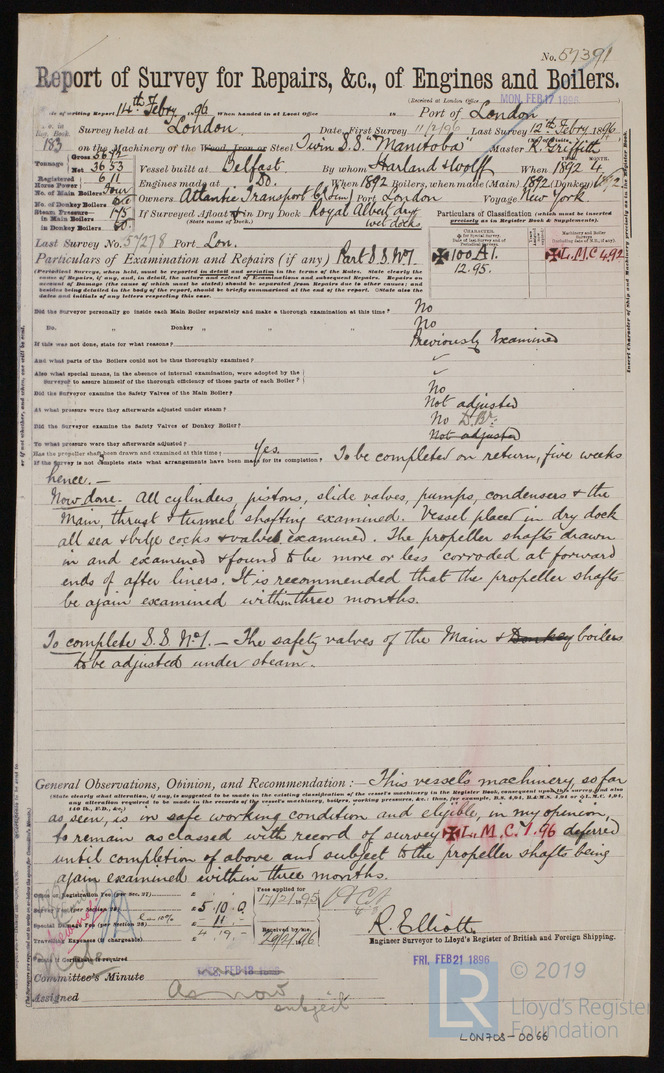 No. 57391
Report of Survey for Repairs, &c., of Engines and Boilers.
(Received at London Office MON. FEB 17 1896
Date of writing Report 14th Febry 1896 When handed in at Local Office 18 Port of London
No. in Reg. Book. 183 Survey held at London Date, First Survey 11/2/96 Last Survey 12th Febry 1896
on the Machinery of the Wood, Iron or Steel Twin S.S. "Manitoba" Master R. Griffith
Tonnage Gross 5672 Net 3653 Vessel built at Belfast By whom Harland & Wolff When 1892 MONTH. 4
Registered Horse Power 611 Engines made at Do. When 1892 Boilers, when made (Main) 1892 (Donkey)
No. of Main Boilers Four Owners Atlantic Transport Co Port London Voyage New York
No. of Donkey Boilers
Steam Pressure in Main Boilers 175 If Surveyed Afloat or in Dry Dock Royal Albert dry & wet docks
in Donkey Boilers 60 (State name of Dock.)
Particulars of Classification (which must be inserted precisely as in Register Book & Supplements).
Last Survey No. 57278 Port Lon.
Particulars of Examination and Repairs (if any) Part S.S. No 1.
100 A1. 12.95. L.M.C 4.92
(Periodical Surveys, when held, must be reported in detail and seriatim in the terms of the Rules. State clearly the
cause of Repairs, if any, and, in detail, the nature and extent of Examinations and subsequent Repairs. Repairs on
account of Damage (the cause of which must be stated) should be separated from Repairs due to other causes; and
besides being detailed in the body of the report, should be briefly summarised at the end of the report. State also the
dates and initials of any letters respecting this case.
Did the Surveyor personally go inside each Main Boiler separately and make a thorough examination at this time? No
Do. " Donkey " " " " No
If this was not done, state for what reasons? Previously Examined
And what parts of the Boilers could not be thus thoroughly examined? ✓
Also what special means, in the absence of internal examination, were adopted by the
Surveyor to assure himself of the thorough efficiency of those parts of each Boiler? ✓
Did the Surveyor examine the Safety Valves of the Main Boiler? No
At what pressure were they afterwards adjusted under steam? Not adjusted
Did the Surveyor examine the Safety Valves of Donkey Boiler? No D.Br:
To what pressure were they afterwards adjusted? Not adjusted
Has the propeller shaft been drawn and examined at this time? Yes.
If the Survey is not complete state what arrangements have been made for its completion? To be completed on return, five weeks
hence. -
Now done. All cylinders, pistons, slide valves, pumps, condensers & the
Main, thrust & tunnel shafting examined. Vessel placed in dry dock
all sea & bilge cocks & valves examined. The propeller shafts drawn
in and examined & found to be more or less corroded at forward
ends of after liners. It is recommended that the propeller shafts
be again examined within three months.
To complete S.S. No 1. - The safety valves of the Main & Donkey boilers
to be adjusted under steam.
General Observations, Opinion, and Recommendation:- This vessel's machinery so far
(State clearly what alteration, if any, is suggested to be made in the existing classification of the vessel's machinery in the Register Book, consequent upon this survey and also
any alteration required to be made in the records of the vessel's machinery, boilers, working pressures, &c.: thus, for example, B.S. 4,94, B.&M.S. 4,94 or L.M.C. 4,94,
140 lb., F.D., &c.)
as seen, is in safe working condition and eligible, in my opinion,
to remain as classed with record of survey L.M.C. 1.96 deferred
until completion of above and subject to the propeller shafts being
again examined within three months.
Office or Registration Fee (per Sec. 27) £ Fees applied for
Survey Fee (per Section 28) £ 5. 10. 0
Special Damage Fee (per Section 28) Less 10% £ - 11. - Received by me,
Travelling Expenses (if chargeable) £ 4. 19. - 29/2/96
R. Elliott
Engineer Surveyor to Lloyd's Register of British and Foreign Shipping.
State if Certificate is required
Committee's Minute
FRI. FEB 21 1896
Assigned As now
subject
© 2019
LR Lloyd's Register
Foundation
LON708-0066